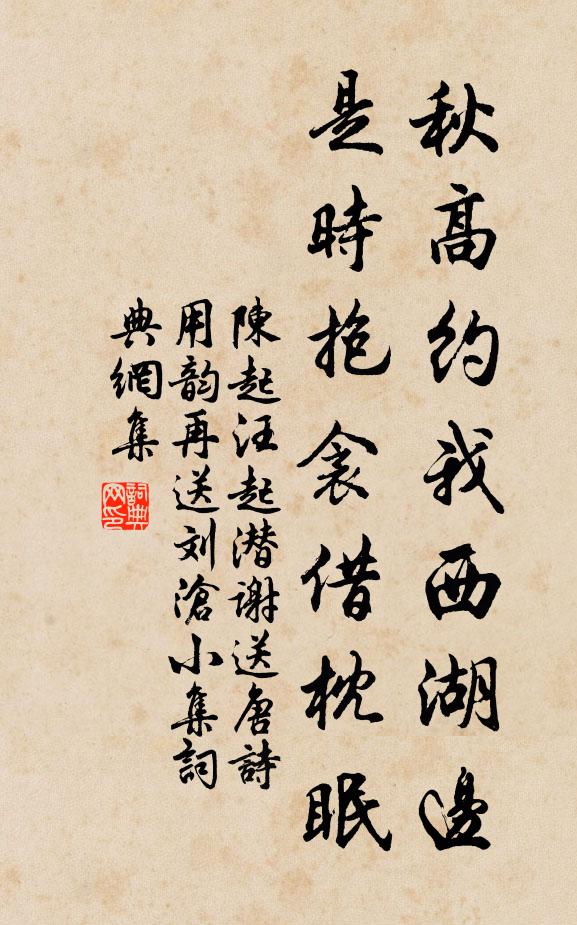 秋高約我西湖邊
是時抱衾借枕眠
陳起汪起潜謝送唐詩
用韵再送刘滄小集詞
典網集
詞典
网印